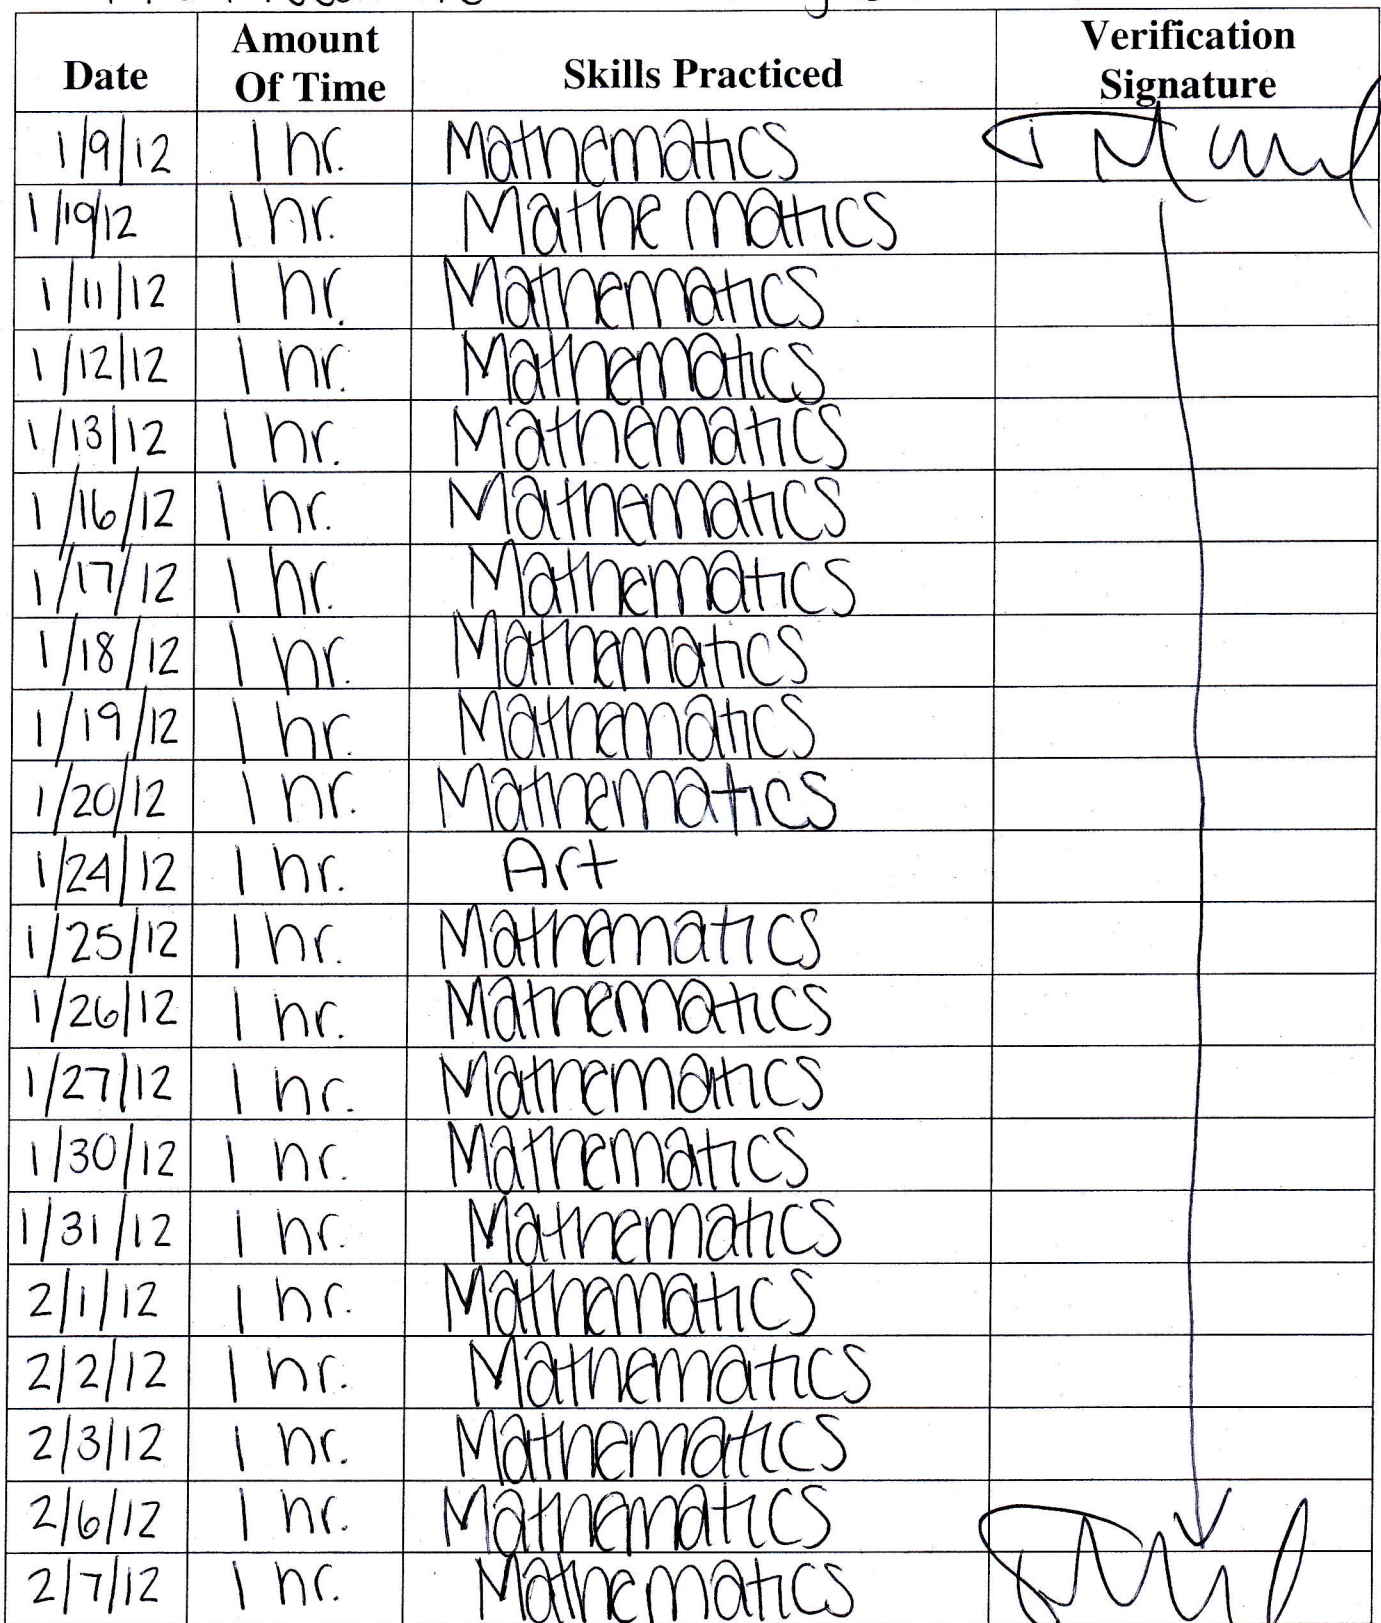 Date Amount Of Time Skills Practiced Verification Signature
1/9/12 1 hr. Mathematics
1/19/12 1 hr. Mathematics
1/11/12 1 hr. Mathematics
1/12/12 1 hr. Mathematics
1/13/12 1 hr. Mathematics
1/16/12 1 hr. Mathematics
1/17/12 1 hr. Mathematics
1/18/12 1 hr. Mathematics
1/19/12 1 hr. Mathematics
1/20/12 1 hr. Mathematics
1/24/12 1 hr. Art
1/25/12 1 hr. Mathematics
1/26/12 1 hr. Mathematics
1/27/12 1 hr. Mathematics
1/30/12 1 hr. Mathematics
1/31/12 1 hr. Mathematics
2/1/12 1 hr. Mathematics
2/2/12 1 hr. Mathematics
2/3/12 1 hr. Mathematics
2/6/12 1 hr. Mathematics
2/7/12 1 hr. Mathematics